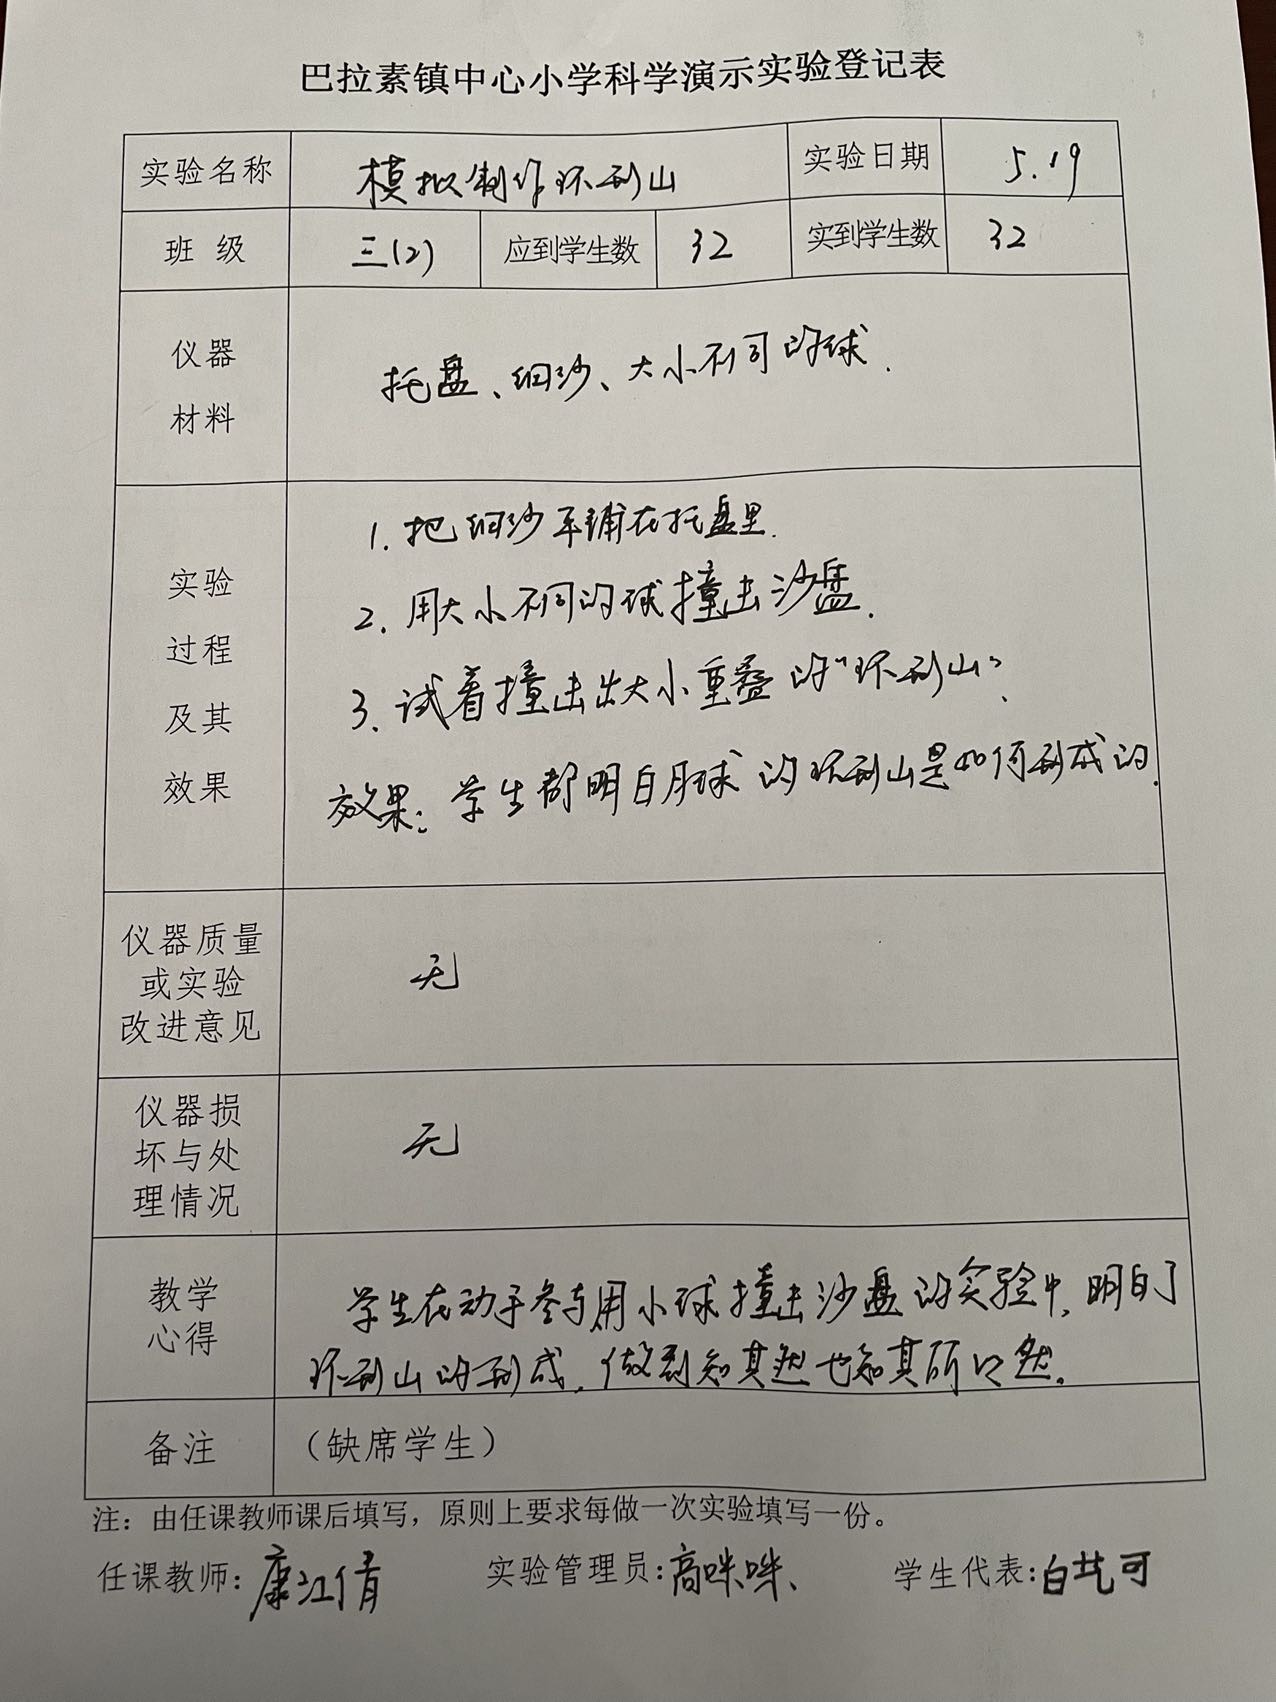 巴拉素镇中心小学科学演示实验登记表
实验名称 模拟制作环形山 实验日期 5.19
班 级 三(2) 应到学生数 32 实到学生数 32
仪器
材料
托盘、细沙、大小不同的球.
实验
过程
及其
效果
1. 把细沙平铺在托盘里.
2. 用大小不同的球撞击沙盘.
3. 试着撞击出大小重叠的“环形山”.
效果: 学生都明白月球的环形山是如何形成的.
仪器质量
或实验
改进意见
无
仪器损
坏与处
理情况
无
教学
心得
学生在动手参与用小球撞击沙盘的实验中, 明白了
环形山的形成, 做到知其然也知其所以然.
备注 (缺席学生)
注: 由任课教师课后填写, 原则上要求每做一次实验填写一份。
任课教师: 康江倩 实验管理员: 高咪咪、 学生代表: 白芃可